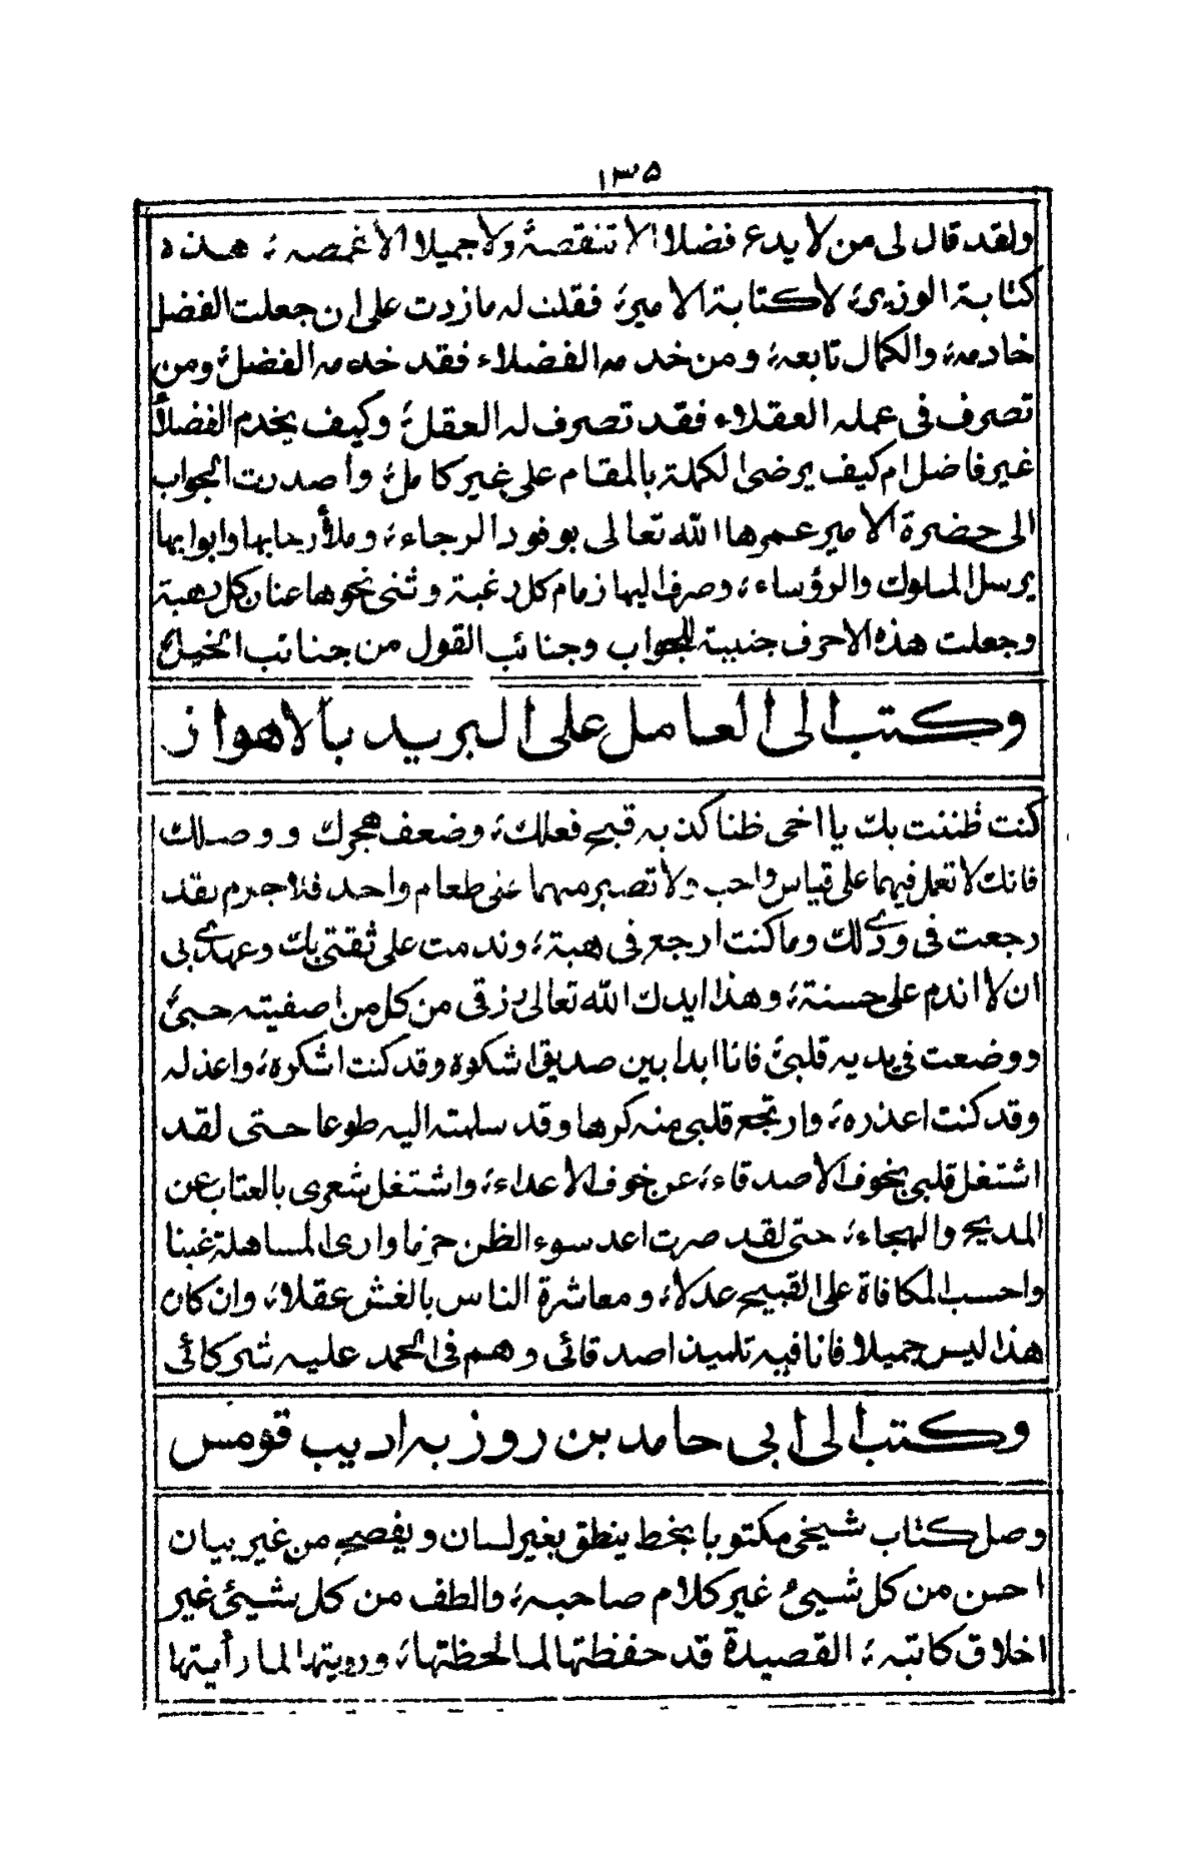 ١٣٥
ولقد قال لي من لا يدع فضلا الا تنقصهٔ ولا جميلا الا غمصه ؛ هذه
كتابة الوزير؛ لا كتابة الامير؛ فقلت له ما زدت على ان جعلت الفضل
خادمه؛ والكمال تابعه؛ ومن خدمه الفضلاء فقد خدمه الفضل؛ ومن
تصرف في عمله العقلاء فقد تصرف له العقل؛ وكيف يخدم الفضلأ
غير فاضل ام كيف يرضى الكملة بالمقام على غير كامل؛ وأصدرت الجواب
الى حضرة الامير عمرها الله تعالى بوفود الرجاء؛ وملأ رحابها وابوابها
برسل الملوك والرؤساء؛ وصرف اليها زمام كل رغبة وثنى نحوها عنان كل رهبة
وجعلت هذه الاحرف جنيبة للجواب وجنائب القول من جنائب الخيل؛
وكتب الى العامل على البريد بألاهواز
كنت ظننت بك يا اخي ظنا كذبه قبح فعلك؛ وضعف هجرك ووصلك
فانك لا تعمل فيهما على قياس واحب ولا تصبر منهما عنى طعام واحد فلا جرم لقد
رجعت في ودي لك وما كنت ارجع في هبة؛ وندمت على ثقتي بك وعهدي بي
ان لا اندم على حسنة؛ وهذا ايدك الله تعالى رزقي من كل من اصفيته حبئ
ووضعت في يديه قلبئ فانا ابدا بين صديق اشكوه وقد كنت اشكره؛ واعذله
وقد كنت اعذره؛ وارتجع قلبي منه كرها وقد سلمته اليه طوعا حتى لقد
اشتغل قلبي بخوف الاصدقاء؛ عن خوف الاعداء؛ واشتغل شعري بالعتاب عن
المديح والهجاء؛ حتى لقد صرت اعد سوء الظن حزما وارى المساهلة غبنا
واحسب المكافاة على القبيح عدلا؛ ومعاشرة الناس بالغش عقلا؛ وان كان
هذا ليس جميلا فانا فيه تلميذ اصدقائي وهم في الحمد عليه شركائي
وكتب الى ابي حامد بن روزبه اديب قومس
وصل كتاب شيخي مكتوبا بخط ينطق بغير لسان ويفصح من غير بيان
احسن من كل شيئ غير كلام صاحبه؛ والطف من كل شيئ غير
اخلاق كاتبه؛ القصيدة قد حفظتها لما لحظتها؛ ورويتها لما رأيتها